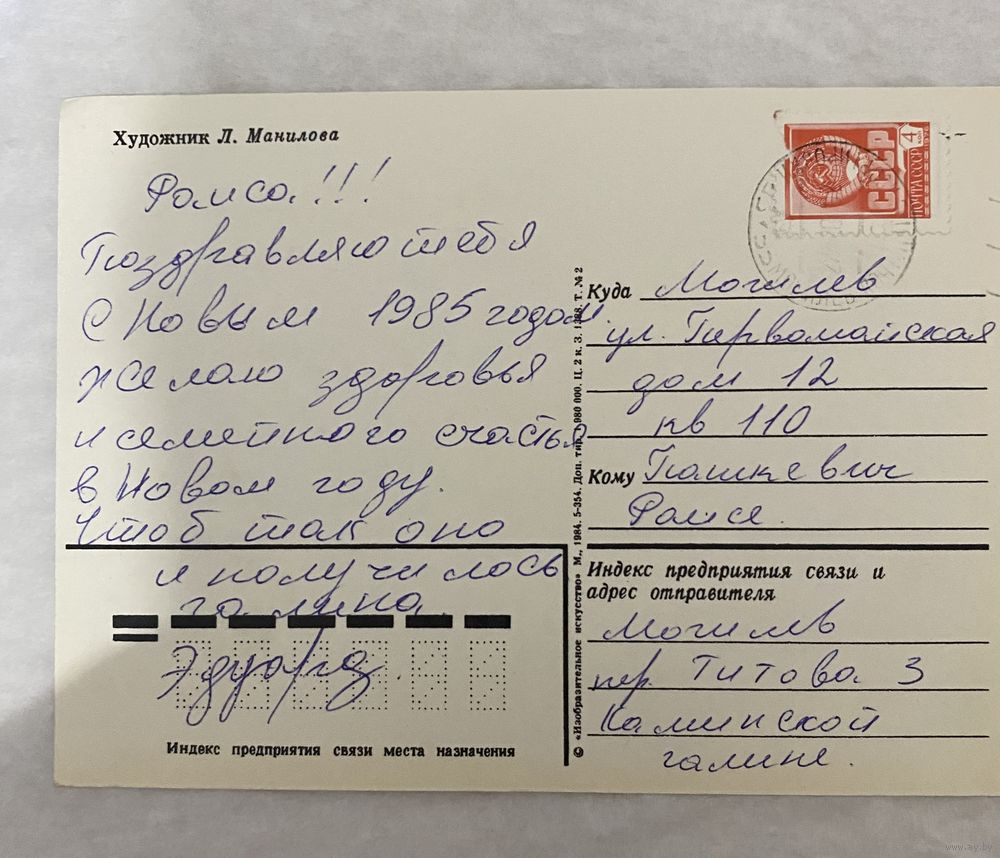 Художник Л. Манилова
СССР
4
коп
1976
ПОЧТА СССР
Раиса!!!
Поздравляю тебя
с Новым 1985 годом.
желаю здоровья
и семейного счастья
в Новом году.
Чтоб так оно
и получилось
галина.
Эдуард.
Индекс предприятия связи места назначения
© «Изобразительное искусство» М., 1984. 5-354. Доп. тир. 980 000. Ц. 2 к. З. Т. № 2
Куда Могилев
ул. Первомайская
дом 12
кв 110
Кому Пашкевич
Раисе.
Индекс предприятия связи и
адрес отправителя
Могилев
пер. Титова 3
Каминской
галине.
www.ay.by